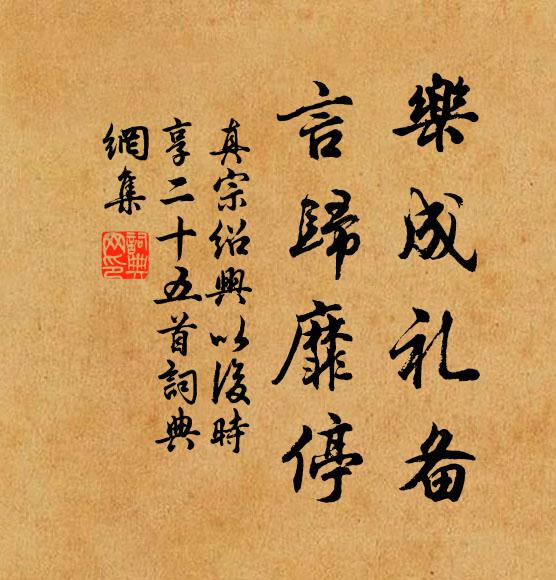 樂成礼备
言歸靡停
真宗绍興以後時
享二十五首詞典
網集
詞典
网印